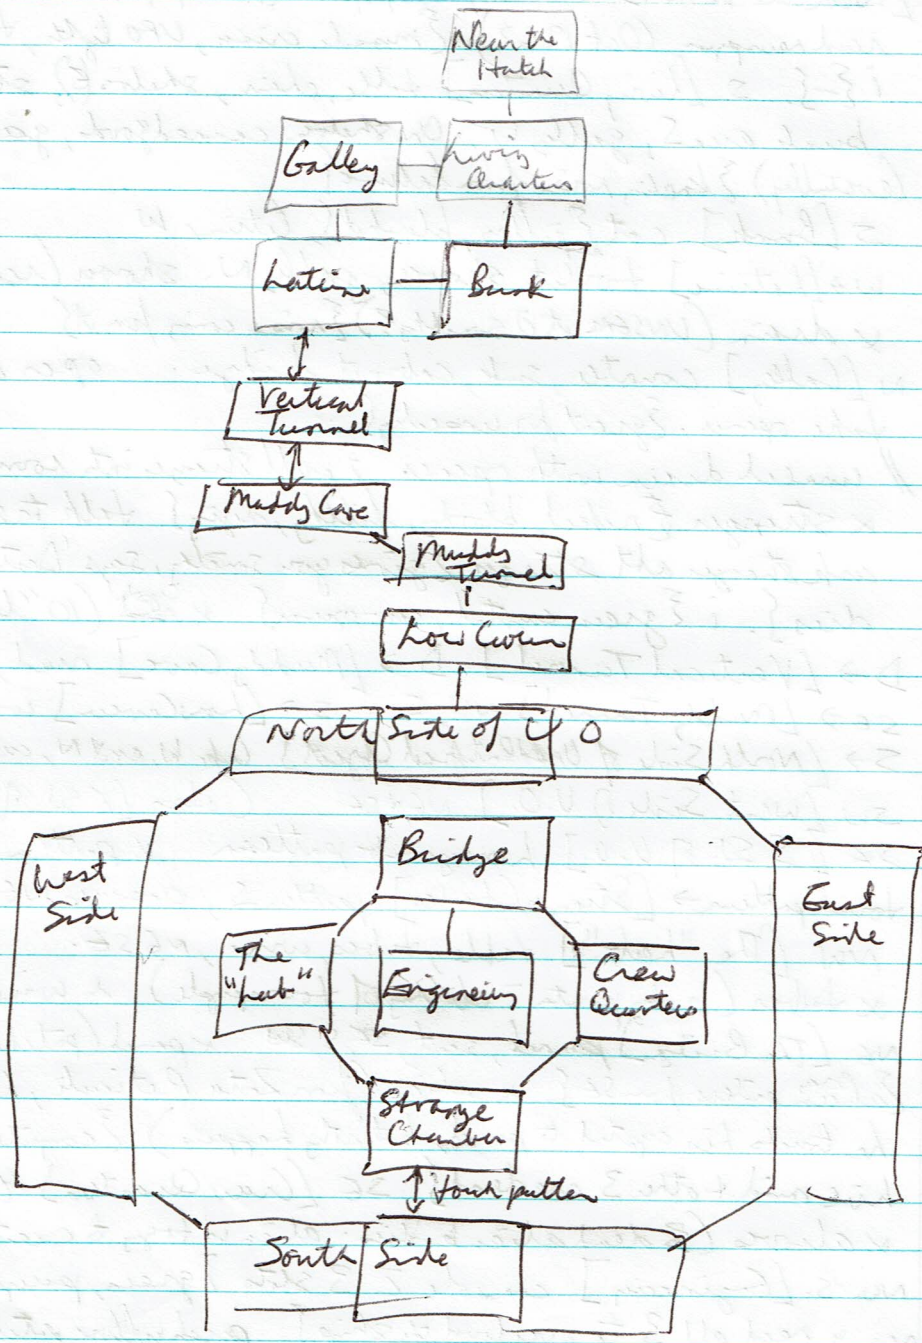 Near the
Hatch
Galley
Living
Quarters
Latrine
Bunk
Vertical
Tunnel
Muddy Cave
Muddy
Tunnel
Low Cavern
North Side of U O
Bridge
West
Side
East
Side
The
"Lab"
Engineering
Crew
Quarters
Strange
Chamber
touch pattern
South Side